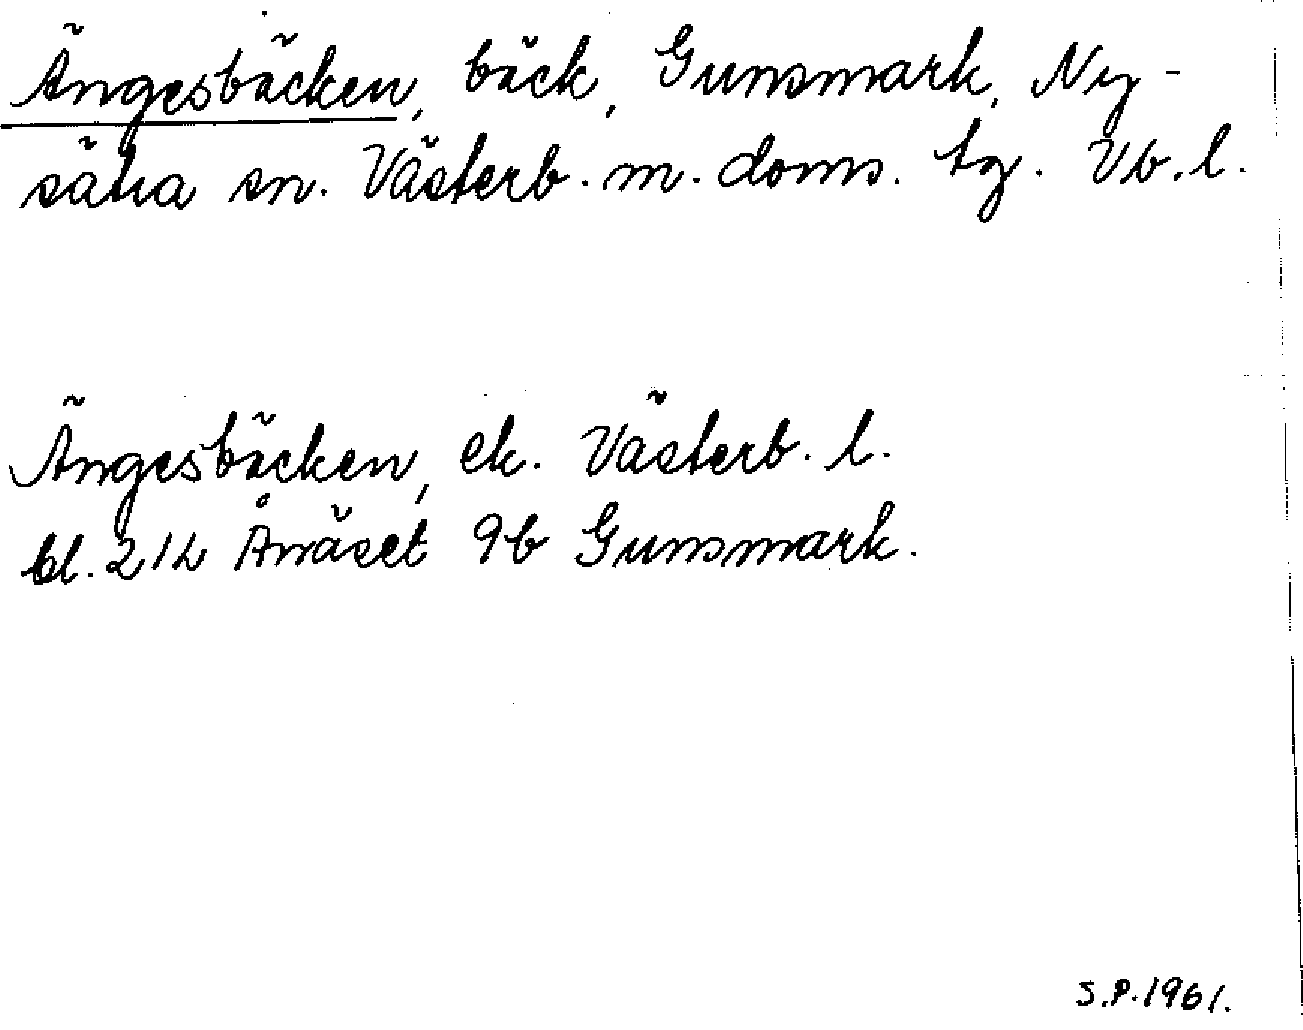 Ängesbäcken, bäck, Gunsmark, Ny-
sätra sn. Västerb. m. doms. tg. Vb.l.
Ängesbäcken, ek. Västerb. l.
bl. 21L Ånäset 9b Gunsmark.
S.P.1961.